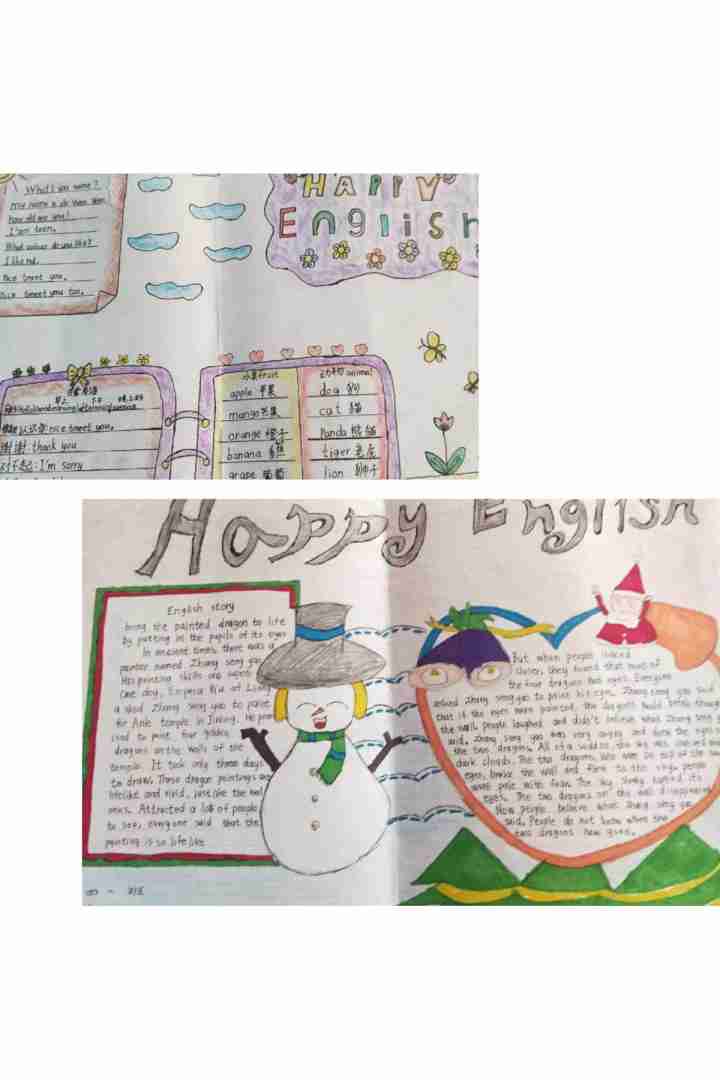 What's you name?
My name is
how old are you?
I'am teen.
What colour do you like?
I like red.
Nice tmeet you.
Nice tmeet you too.
HAPPY
English
认识你nice tmeet you.
谢谢 thank you
对不起: I'm sorry
水果fruit
apple 苹果
mango 芒果
orange 橙子
banana 香蕉
grape 葡萄
动物animal
dog 狗
cat 猫
Panda 熊猫
tiger 老虎
lion 狮子
Happy English
English story
bring the painted dragon to life
by putting in the pupils of its eyes
In ancient times, there was a
painter named Zhang seng yao.
His painting skills are superb
One day, Emperor Wu of Liang
asked Zhang seng yao to paint
for Anle temple in Jinling. He pro
ised to paint four golden
dragons on the walls of the
temple. It took only three days
to draw. These dragon paintings are
lifelike and vivid, just like the real
ones. Attracted a lot of people
to see, everyone said that the
painting is so life like
But when people looked
closer, they found that most of
the four dragons had eyes. Everyone
asked Zhang seng yao to paint his eyes. Zhang seng yao said
that if the eyes were painted, the dragons would break through
the wall. people laughed and didn't believe what Zhang seng yao
said. Zhang seng yao was very angry and drew the eyes of
the two dragons. All of a sudden, the sky was covered with
dark clouds. The two dragons, who were
eyes, broke the wall and flew to the sky. people
were pale with fear. The sky slowly opened its
eyes. The two dragons on the wall disappeared
Now people believe what Zhang seng yao
said. People do not know where the
two dragons have gone.